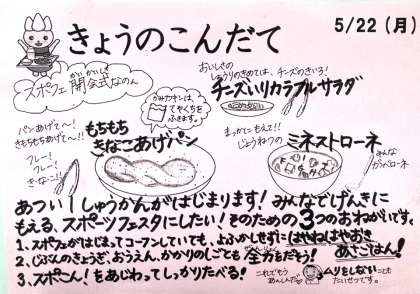 きょうのこんだて
5/22(月)
スポフェ開会式なのん
かいかいしき
おいしさの
しょうりのきめては、チーズのきいろ!
チーズいりカラフルサラダ
かみナフキンは、
てやくちを
ふきます。
パンあげて〜!!
もちもちあげて〜!!
もちもち
きなこあげパン
フレー!
フレー!
きーなこ!!
まっかにもえて!!
じょうねつの
ミネストローネ
みんな
がんベローネ
あつい1しゅうかんがはじまります!みんなでげんきに
もえる、スポーツフェスタにしたい!そのための3つのおねがいです。
1.スポフェがはじまってコーフンしていても、よふかしせずにはやねはやおきあさごはん!
2.じぶんのきょうぎ、おうえん、かかりのしごとも全力をだそう!
ぜんりょく
3.スポこん!をあじわってしっかりたべる!
これでもう
ムリをしないことも
たいせつです。